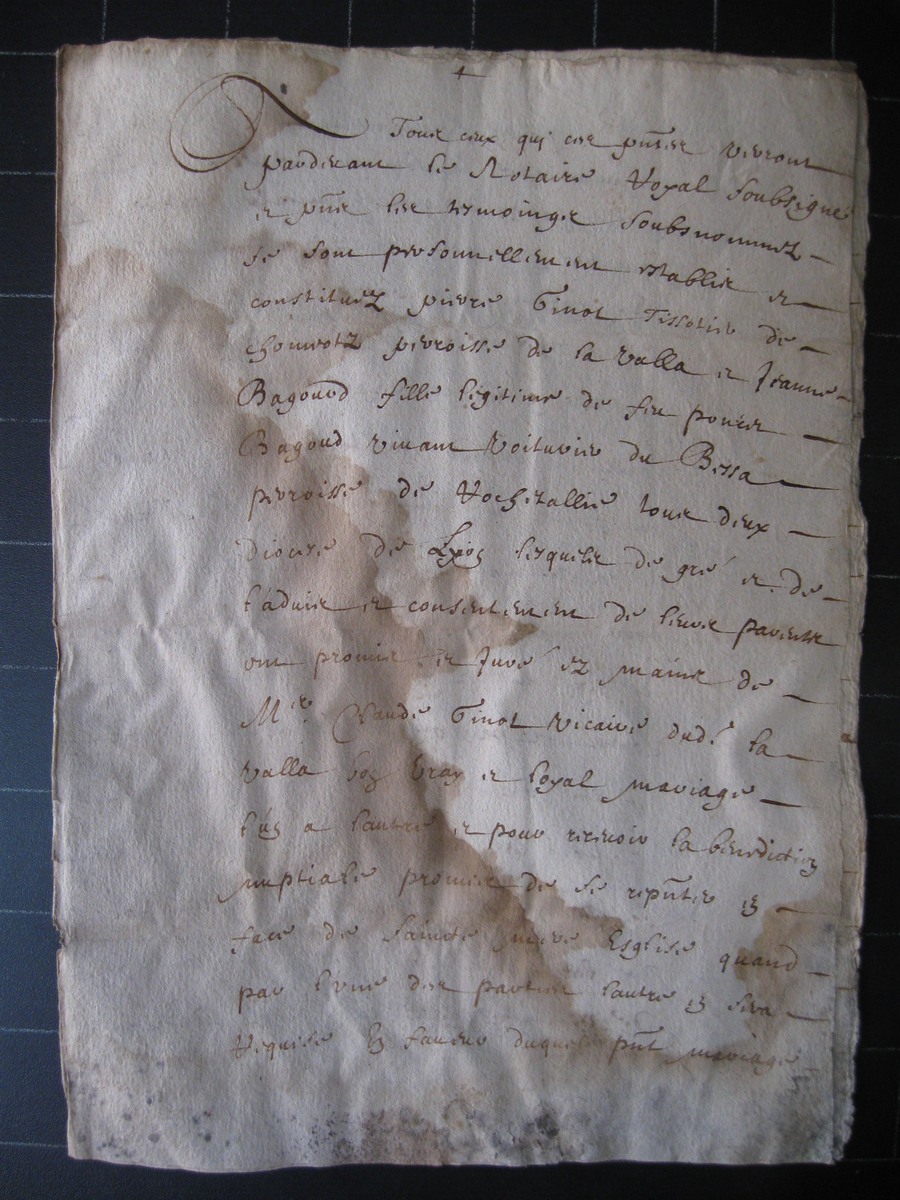 A Tous ceux qui ces pñtes verront
pardevant le Notaire Royal soubsigné
et pñts les tesmoings soubsnommez
se sont personnellement establis et
constituez pierre Ginot Tissotier de
perroisse de la valla et Jeanne
Bagoud fille legitime de feu
Bagoud vivant Voiturier du Bessa
perroisse de Rochetallie tous deux
diocese de Lyon lesquels de gré et de
l'advis et consentement de leurs parents
ont promis et Juré ez mains de
Mre Claude Ginot vicaire dudt la
valla bon vray et loyal mariage
l'un a l'autre et pour recevoir la benediction
nuptialle promis de se repñter en
face de saincte mere Esglise quand
par l'une des parties l'autre en sera
Requise En faveur duquel pñt mariage